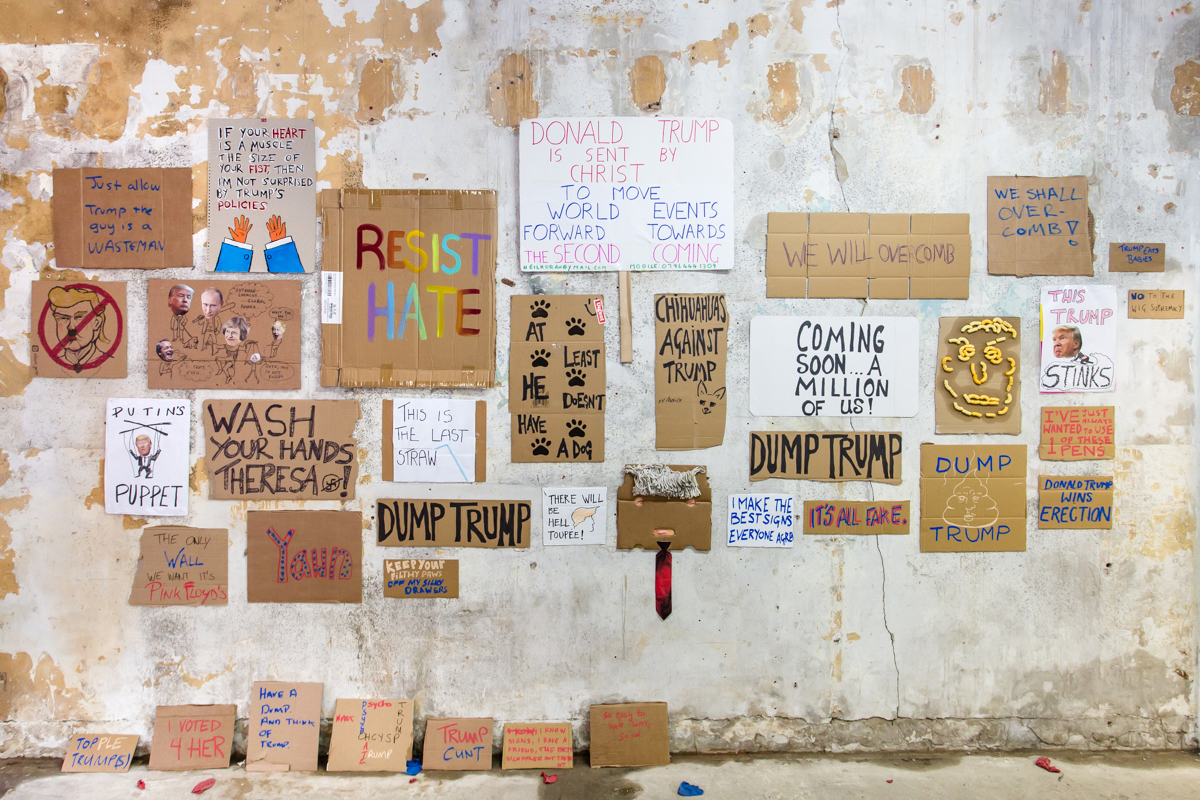 Just allow
Trump the
guy is a
WASTEMAN
IF YOUR HEART
IS A MUSCLE
THE SIZE OF
YOUR FIST, THEN
I'M NOT SURPRISED
BY TRUMP'S
POLICIES
RESIST
HATE
DONALD TRUMP
IS SENT BY
CHRIST
TO MOVE
WORLD EVENTS
FORWARD TOWARDS
THE SECOND COMING
WE WILL OVERCOMB
WE SHALL
OVER-
COMB!
TRUMP EATS
BABIES
NO TO THE
WIG SUPREMACY
AT
LEAST
HE
DOESN'T
HAVE
A DOG
CHIHUAHUAS
AGAINST
TRUMP
COMING
SOON...A
MILLION
OF US!
THIS
TRUMP
STINKS
PUTIN'S
PUPPET
WASH
YOUR HANDS
THERESA!
THIS IS
THE LAST
STRAW
DUMP TRUMP
I'VE JUST
ALWAYS
WANTED TO USE
1 OF THESE
PENS
DUMP
TRUMP
DONALD TRUMP
WINS
ERECTION
DUMP TRUMP
THERE WILL
BE
HELL
TOUPEE!
I MAKE THE
BEST SIGNS
EVERYONE AGREES
IT'S ALL FAKE.
THE ONLY
WALL
WE WANT IT'S
PINK FLOYD'S
KEEP YOUR
FILTHY PAWS
OFF MY SILKY
DRAWERS
TOPPLE
TRUMP(S)
I VOTED
4 HER
HAVE A
DUMP.
AND THINK
OF
TRUMP.
Psycho
TRUMP
TRUMP
CUNT
I KNOW
SIGNS, I HAVE A
FRIEND, THE BEST